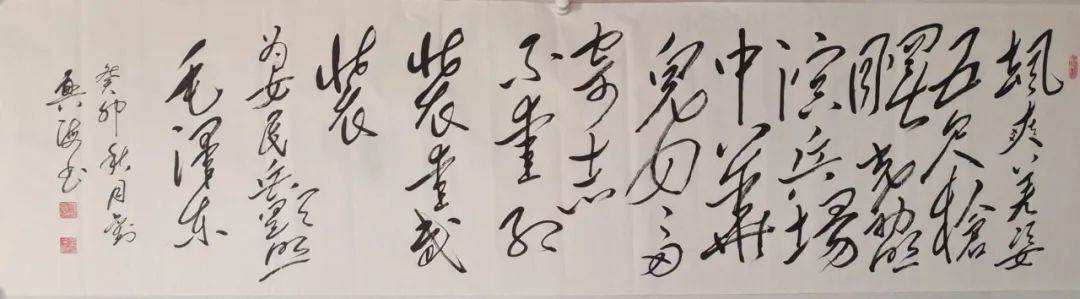 飒爽英姿
五尺槍
曙光初照
演兵場
中華
兒女多
奇志
不爱红
装爱武
装
为女民兵题照
毛澤东
癸卯秋月劉
興海书